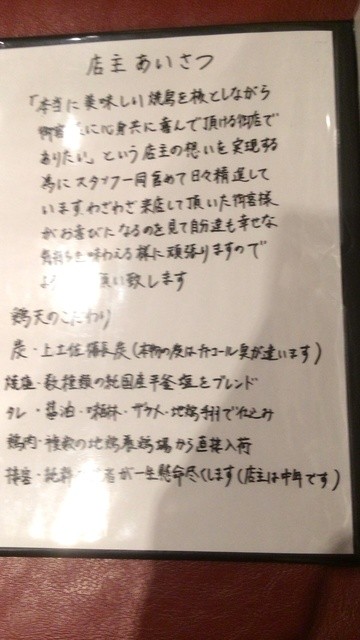 店主あいさつ
「本当に美味しい焼鳥を核としながら
御客様に心身共に喜んで頂ける御店で
ありたい」という店主の想いを実現する
為にスタッフ一同含めて日々精進して
います。わざわざ来店して頂いた御客様
がお喜びになるのを見て自分達も幸せな
気持を味わえる様に頑張りますので
願い致します
鶏天のこだわり
炭・上土佐備長炭(本物の炭はチャコール臭が違います)
焼塩・数種類の純国産平釜塩をブレンド
タレ・醤油・味醂・ザラメ・地鶏手羽で仕込み
鶏肉・種数の地鶏養鶏場から直接入荷
接客・純粋 者が一生懸命尽くします(店主は中年です)